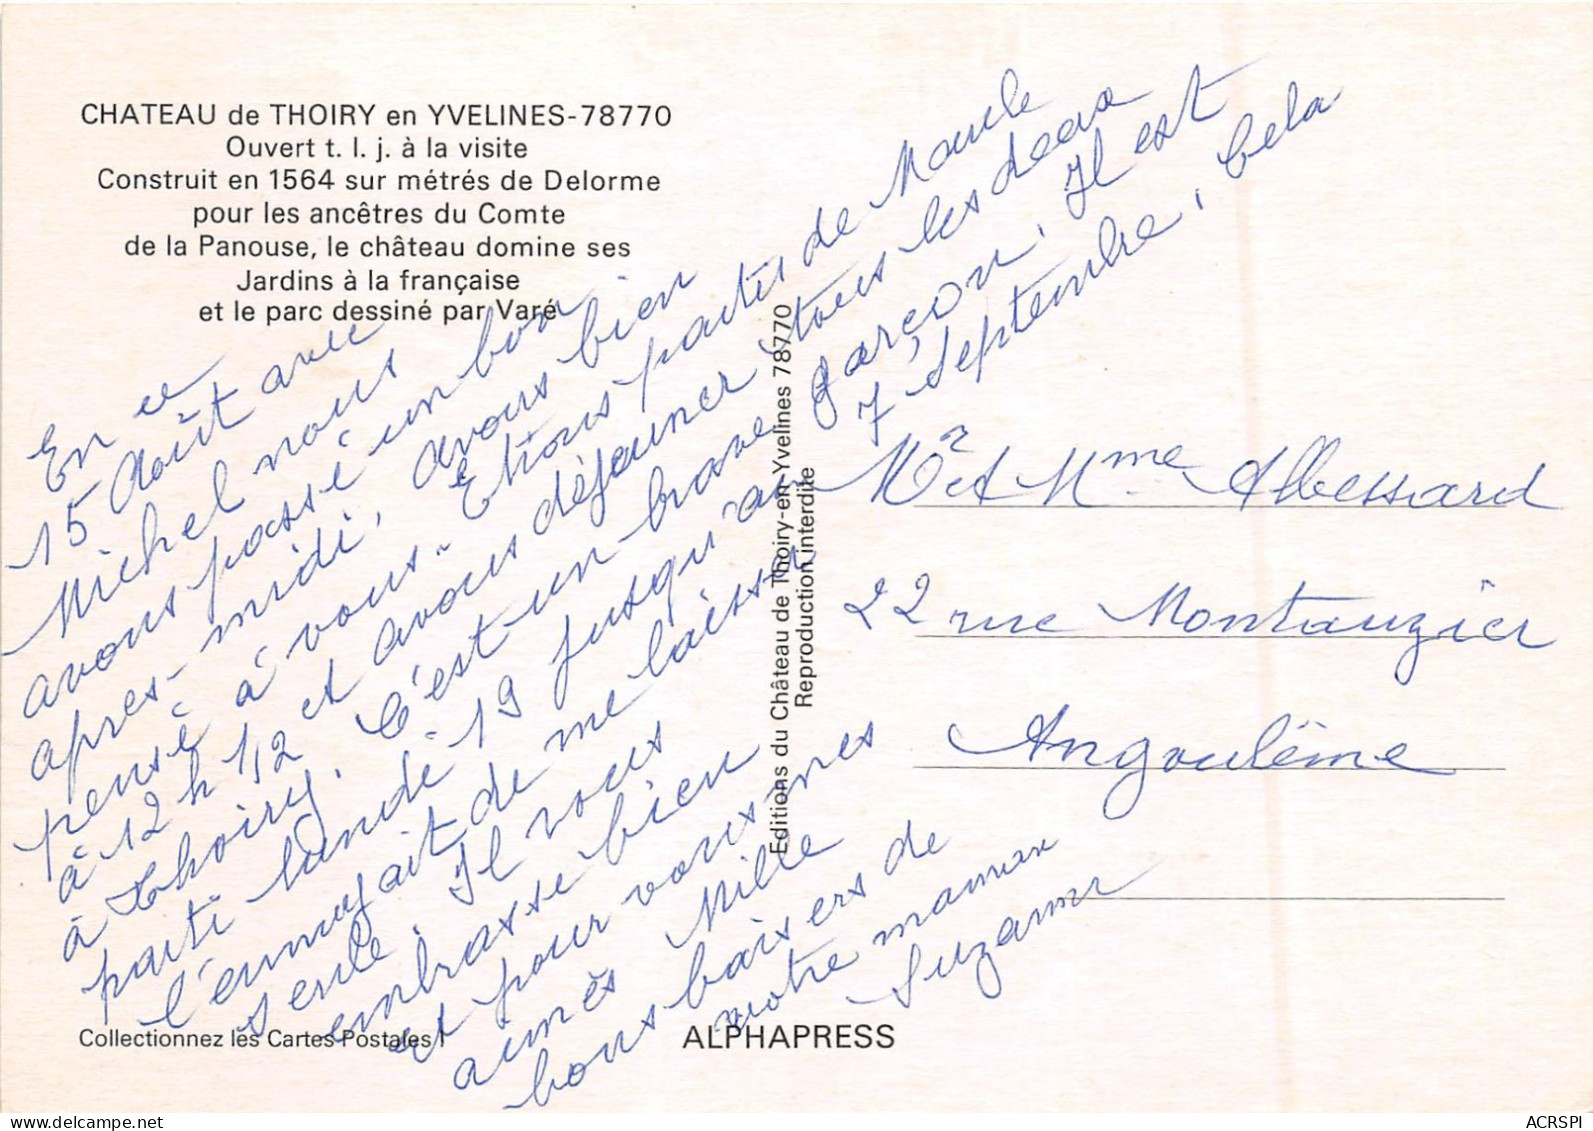 CHATEAU de THOIRY en YVELINES-78770
Ouvert t. l. j. à la visite
Construit en 1564 sur métrés de Delorme
pour les ancêtres du Comte
de la Panouse, le château domine ses
Jardins à la française
et le parc dessiné par Varé
En ce
15 Août avec
Michel nous
avons passé un bon
apres-midi, avons bien
pensé à vous. Etions partis de Maule
à 12 h 1/2 et avons déjeuner tous les deux
à Thoiry. C'est un brave garçon, Il est
parti lundi 19 jusqu'au 7 Septembre, Cela
l'ennuyait de me laisser
seule. Il vous
embrasse bien
et pour vous mes
aimés Mille
bons baisers de
votre maman
Suzanne
Editions du Château de Thoiry-en-Yvelines 78770
Reproduction interdite
Mr et Mme Albessard
22 rue Montauzier
Angoulême
Collectionnez les Cartes Postales !
ALPHAPRESS
delcampe.net
ACRSPI